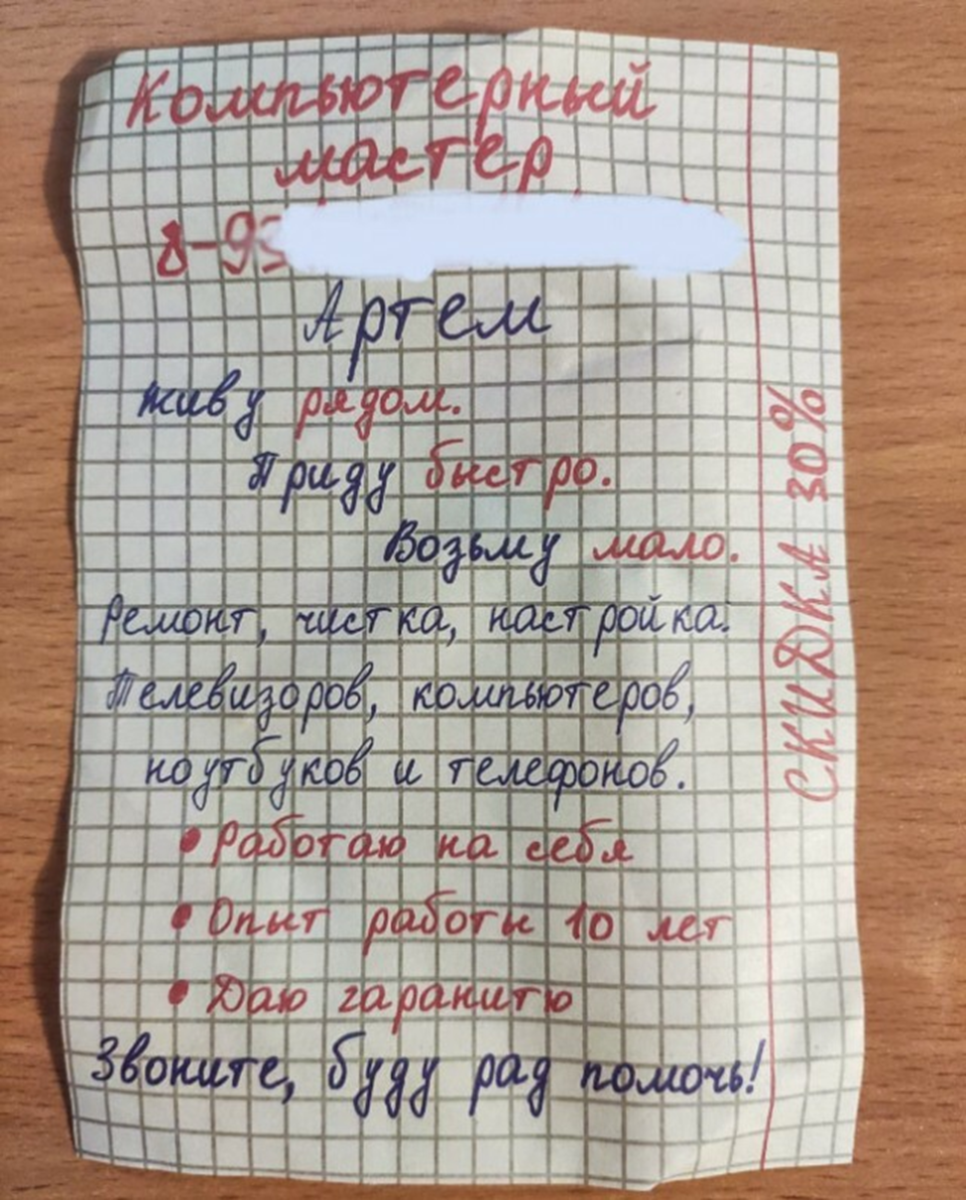 Компьютерный
мастер
8-95
Артем
Живу рядом.
Приду быстро.
Возьму мало.
Ремонт, чистка, настройка.
Телевизоров, компьютеров,
ноутбуков и телефонов.
• Работаю на себя
• Опыт работы 10 лет
• Даю гаранитю
Звоните, буду рад помочь!
СКИДКА 30%